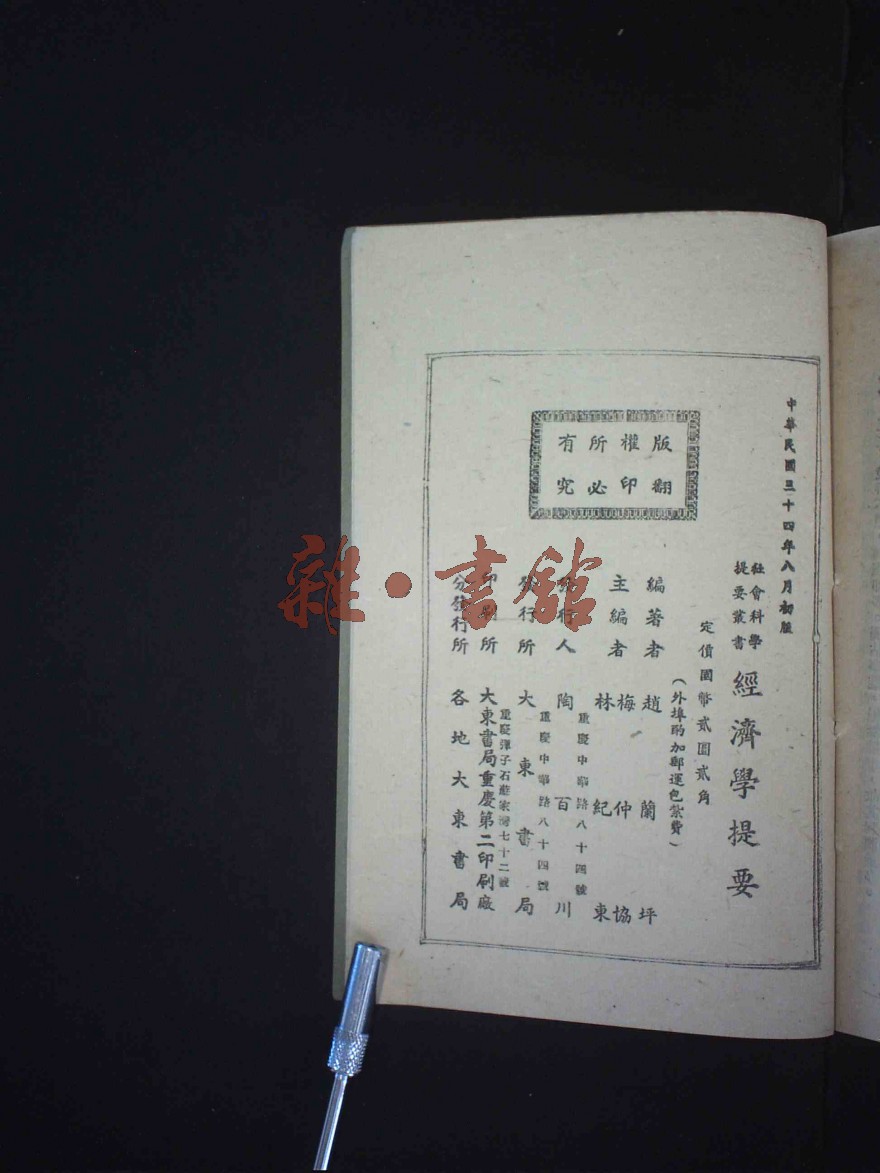 中華民國三十四年八月初版
社會科學
提要叢書
經濟學提要
定價國幣貳圓貳角
(外埠酌加郵運包紮費)
版權所有
翻印必究
編著者 趙蘭坪
主編者 梅仲協
林紀東
發行人 陶百川
重慶中華路八十四號
發行所 大東書局
重慶中華路八十四號
印刷所 大東書局重慶第二印刷廠
重慶彈子石莊家灣七十二號
分發行所 各地大東書局
雜·書館